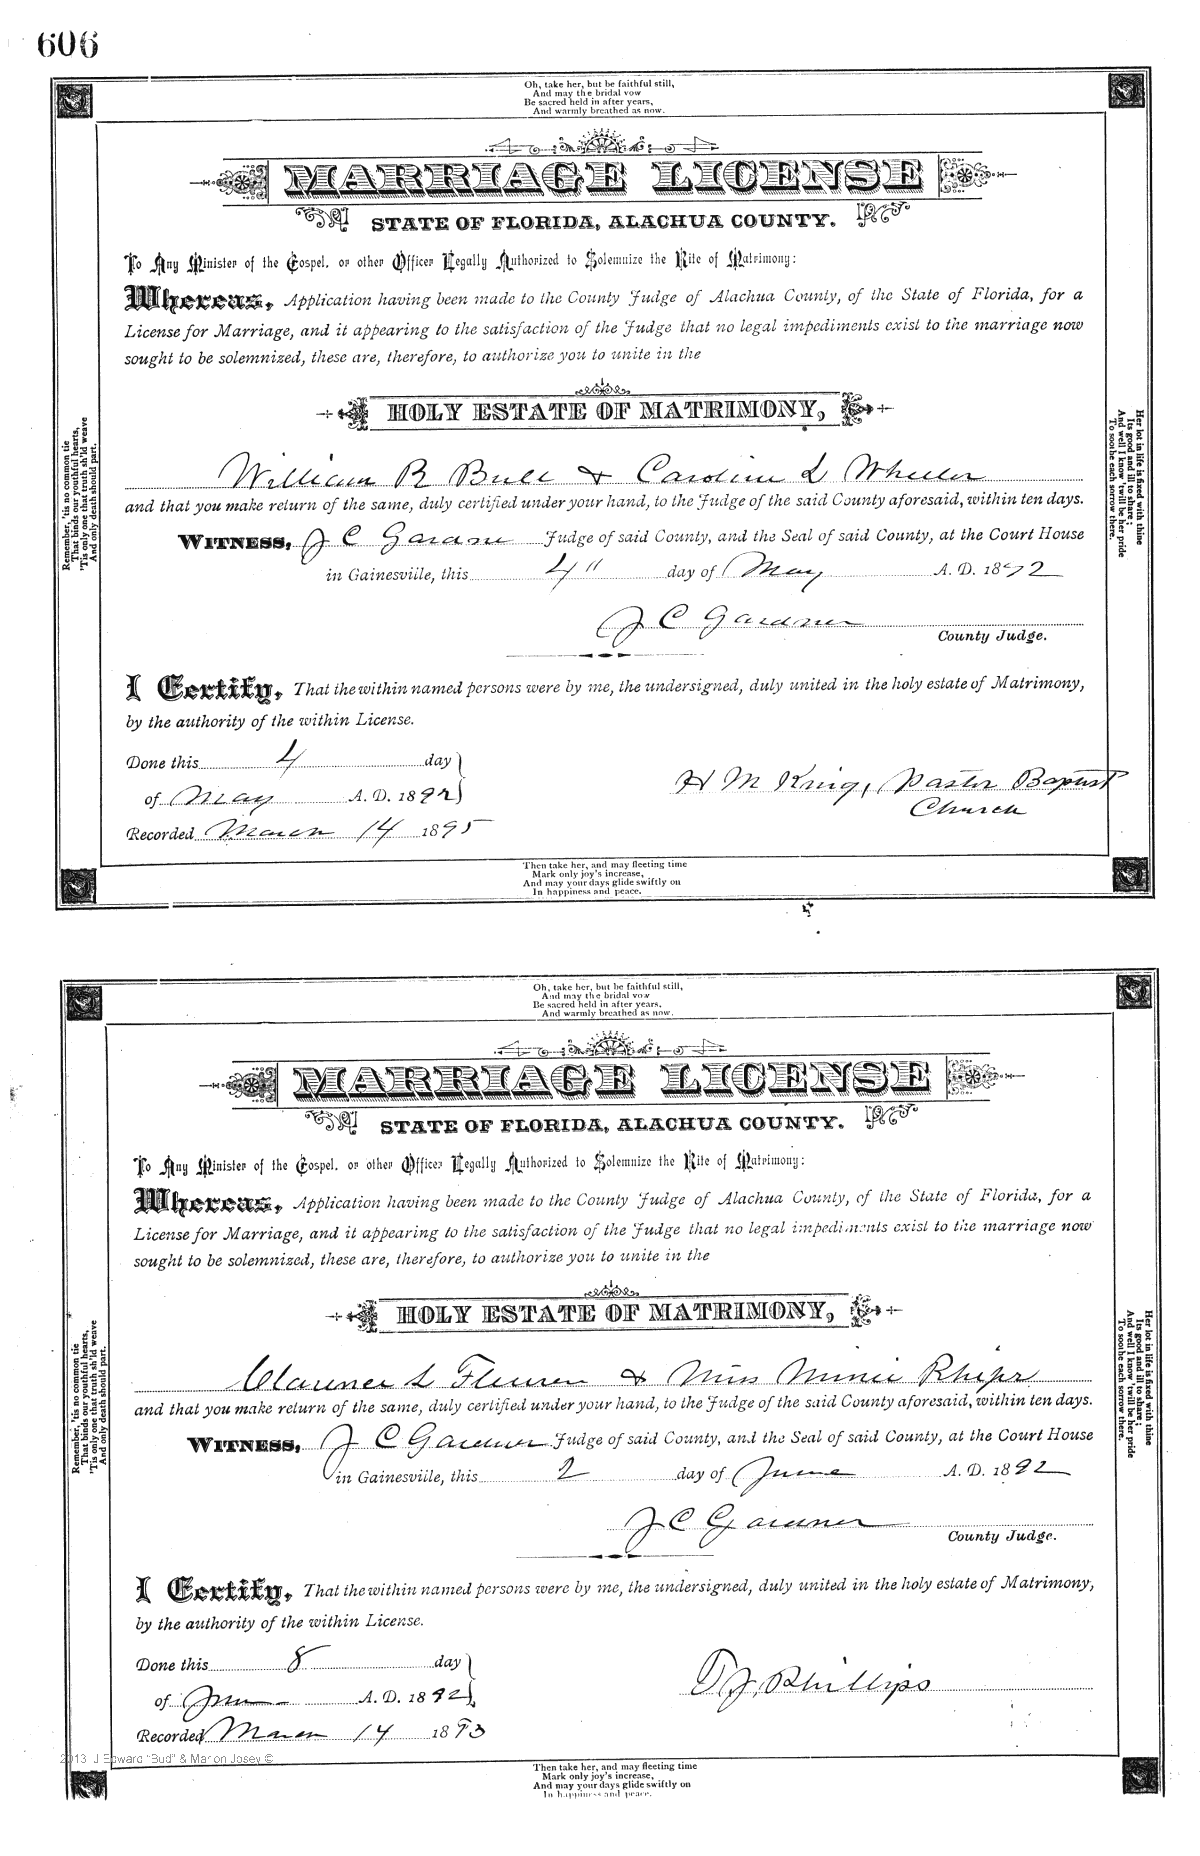 606
Oh, take her, but be faithful still,
And may the bridal vow
Be sacred held in after years,
And warmly breathed as now.
MARRIAGE LICENSE
STATE OF FLORIDA, ALACHUA COUNTY.
To Any Minister of the Gospel, or other Officer Legally Authorized to Solemnize the Rite of Matrimony:
Whereas, Application having been made to the County Judge of Alachua County, of the State of Florida, for a
License for Marriage, and it appearing to the satisfaction of the Judge that no legal impediments exist to the marriage now
sought to be solemnized, these are, therefore, to authorize you to unite in the
HOLY ESTATE OF MATRIMONY,
William R Bull & Caroline L Wheeler
and that you make return of the same, duly certified under your hand, to the Judge of the said County aforesaid, within ten days.
WITNESS, J C Gardner Judge of said County, and the Seal of said County, at the Court House
in Gainesville, this 4" day of May A. D. 1892
J C Gardner
County Judge.
I Certify, That the within named persons were by me, the undersigned, duly united in the holy estate of Matrimony,
by the authority of the within License.
Done this 4 day
of May A. D. 1892
H M King, Pastor Baptist
Church
Recorded March 14 1895
Remember, 'tis no common tie
That binds our youthful hearts,
'Tis only one that truth sh'ld weave
And only death should part.
Her lot in life is fixed with thine
Its good and ill to share;
And well I know 'twill be her pride
To soothe each sorrow there.
Then take her, and may fleeting time
Mark only joy's increase,
And may your days glide swiftly on
In happiness and peace.
Oh, take her, but be faithful still,
And may the bridal vow
Be sacred held in after years,
And warmly breathed as now.
MARRIAGE LICENSE
STATE OF FLORIDA, ALACHUA COUNTY.
To Any Minister of the Gospel, or other Officer Legally Authorized to Solemnize the Rite of Matrimony:
Whereas, Application having been made to the County Judge of Alachua County, of the State of Florida, for a
License for Marriage, and it appearing to the satisfaction of the Judge that no legal impediments exist to the marriage now
sought to be solemnized, these are, therefore, to authorize you to unite in the
HOLY ESTATE OF MATRIMONY,
Clarence L & Miss
and that you make return of the same, duly certified under your hand, to the Judge of the said County aforesaid, within ten days.
WITNESS, J C Gardner Judge of said County, and the Seal of said County, at the Court House
in Gainesville, this 2 day of June A. D. 1892
J C Gardner
County Judge.
I Certify, That the within named persons were by me, the undersigned, duly united in the holy estate of Matrimony,
by the authority of the within License.
Done this 8 day
of June A. D. 1892
T J Phillips
Recorded March 14 1893
Remember, 'tis no common tie
That binds our youthful hearts,
'Tis only one that truth sh'ld weave
And only death should part.
Her lot in life is fixed with thine
Its good and ill to share;
And well I know 'twill be her pride
To soothe each sorrow there.
2013 J Edward "Bud" & Marion Josey ©
Then take her, and may fleeting time
Mark only joy's increase,
And may your days glide swiftly on
In happiness and peace.